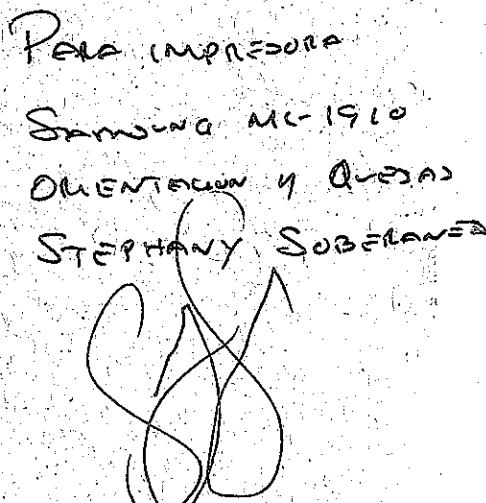 PARA IMPRESORA
SAMSUNG ML-1910
ORIENTACION Y QUEJAS
STEPHANY SOBERANES